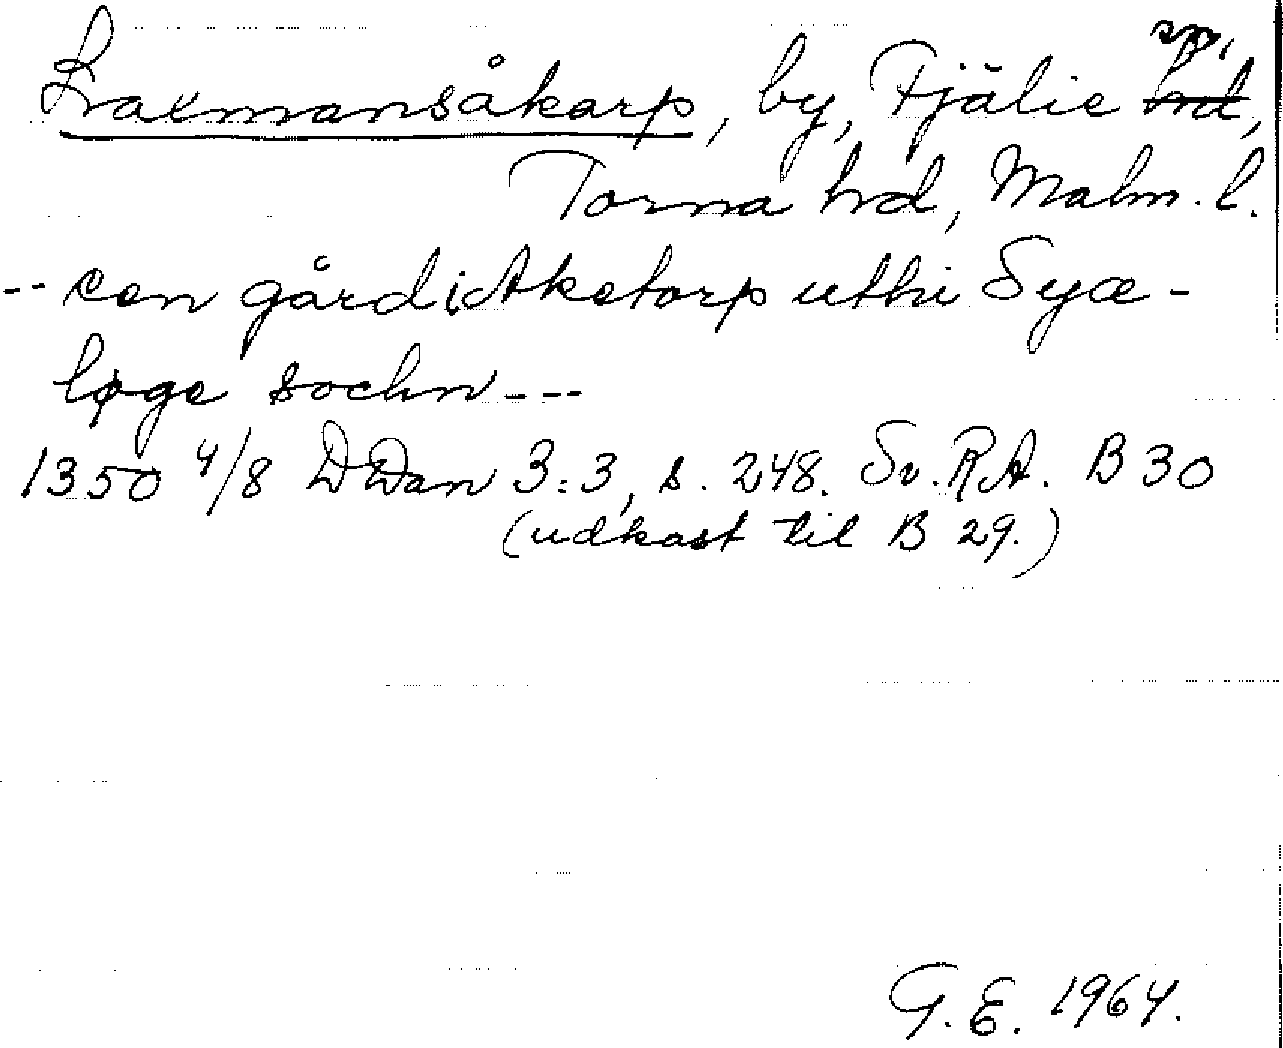 Laxmansåkarp, by, Fjälie sn,
Torna hd, Malm. l.
-- een gård i Aketorp uthi Syæ-
løge sochn ---
1350 4/8 DDan 3:3, s. 248. Sv. R.A. B 30
(udkast til B 29.)
G. E. 1964.